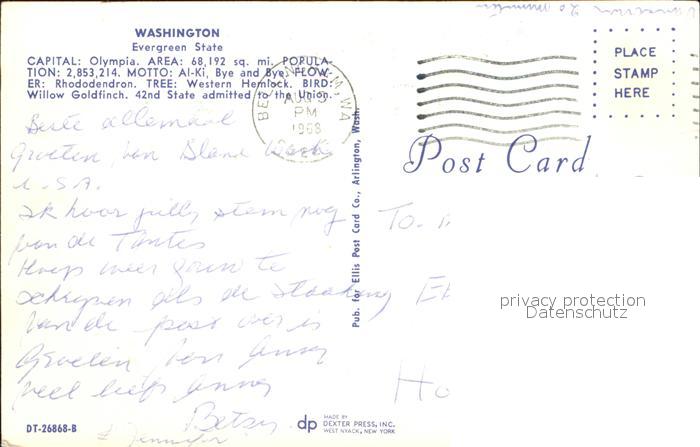 WASHINGTON
Evergreen State
CAPITAL: Olympia. AREA: 68,192 sq. mi. POPULA-
TION: 2,853,214. MOTTO: Al-Ki, Bye and Bye. FLOW-
ER: Rhododendron. TREE: Western Hemlock. BIRD:
Willow Goldfinch. 42nd State admitted to the Union.
AUG
PM
1968
PLACE
STAMP
HERE
Post Card
Beste allemaal
Groeten van
U.S.A.
Ik hoor jullie stem nog
van de Tantes
Hoop weer gauw te
schrijven als de staking
van de post over is
Groeten van
veel liefs
Betsy
& Jennifer
Pub. for Ellis Post Card Co., Arlington, Wash.
To.
Ho
privacy protection
Datenschutz
DT-26868-B
dp
MADE BY
DEXTER PRESS, INC.
WEST NYACK, NEW YORK